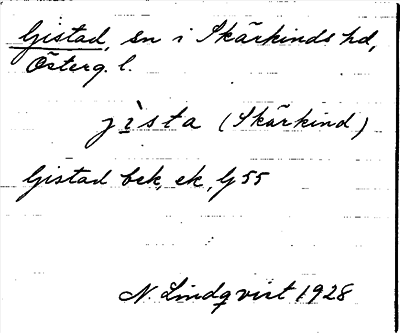 Gistad, sn i Skärkinds hd,
Österg. l.
jìsta (Skärkind)
Gistad bek, ek, G 55
N. Lindqvist 1928